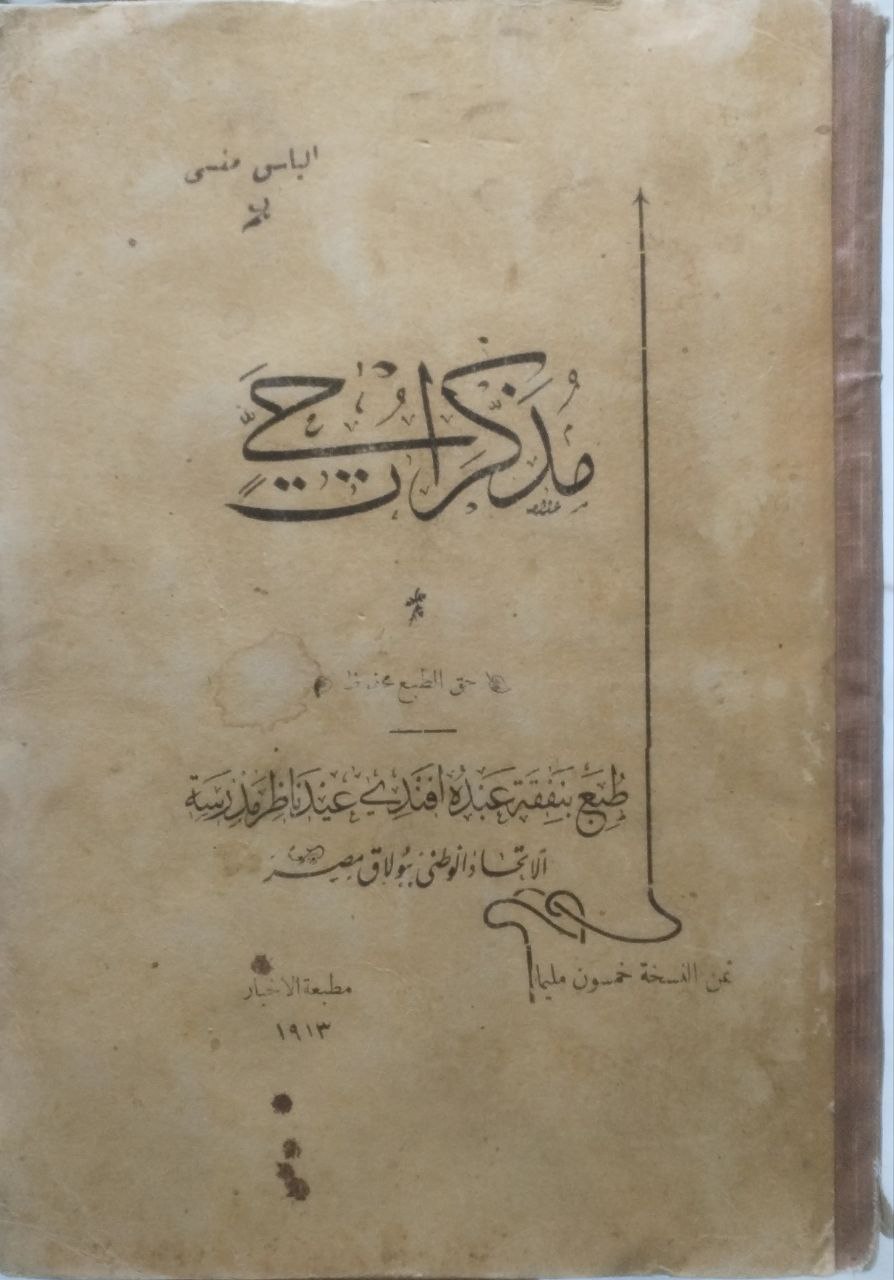 الياس منسى
مُذَكِّرَاتُ حَيٍّ
حق الطبع محفوظ
طُبِعَ بِنَفَقَةِ عَبْدُه افَنْدِي عِيْد نَاظِر مَدْرَسَة
الاتحاد الوطنى ببولاق مصر
ثمن النسخة خمسون مليما
مطبعة الاخبار
١٩١٣